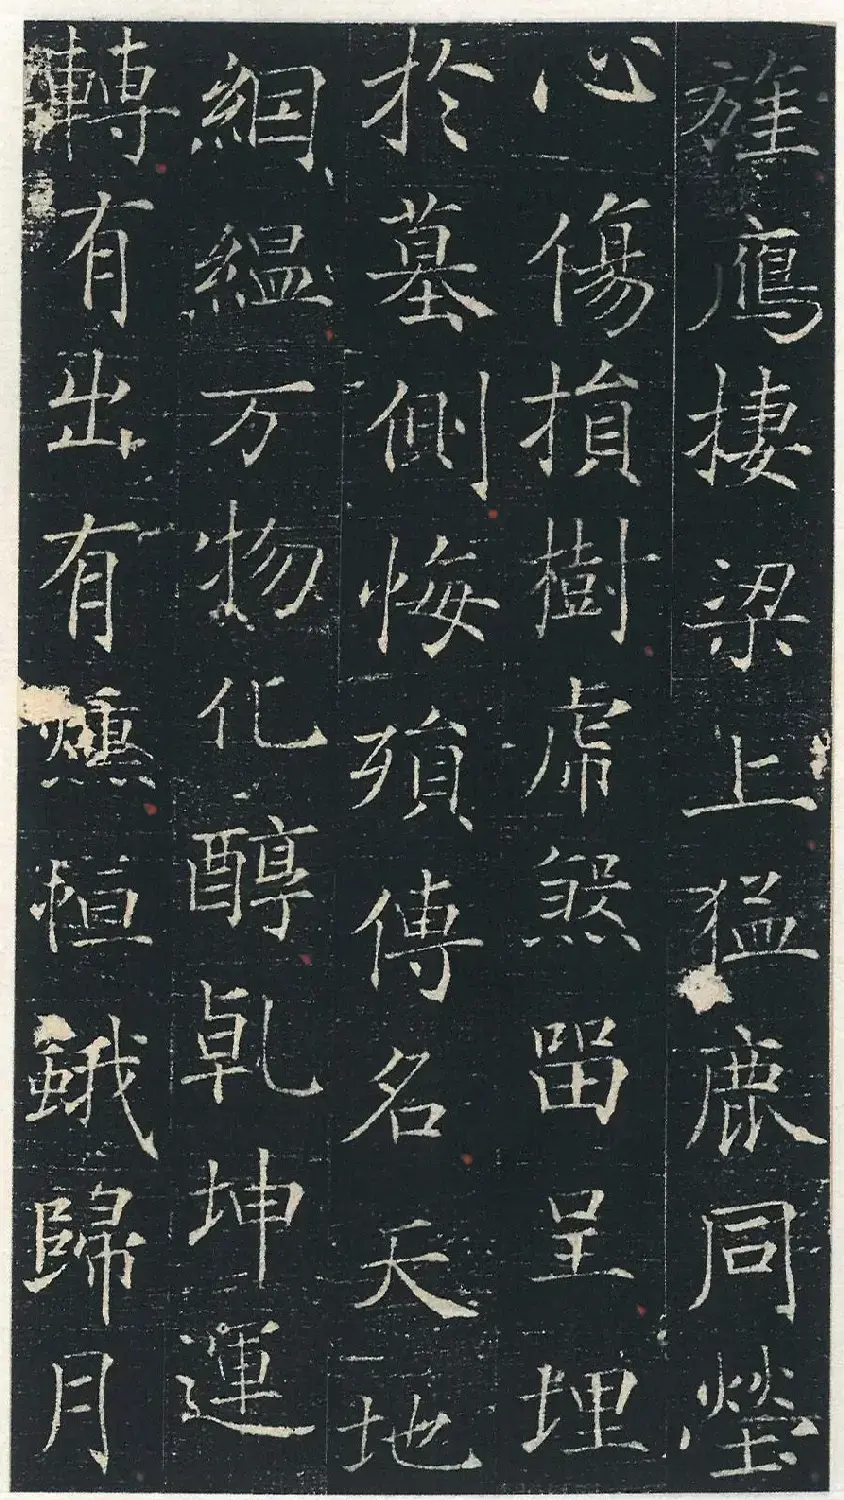 旌鴈棲梁上猛鹿同塋
心傷損樹虎煞留呈埋
於墓側悔殞傳名天地
絪縕万物化醇乹坤運
轉有出有燻恒蛾歸月